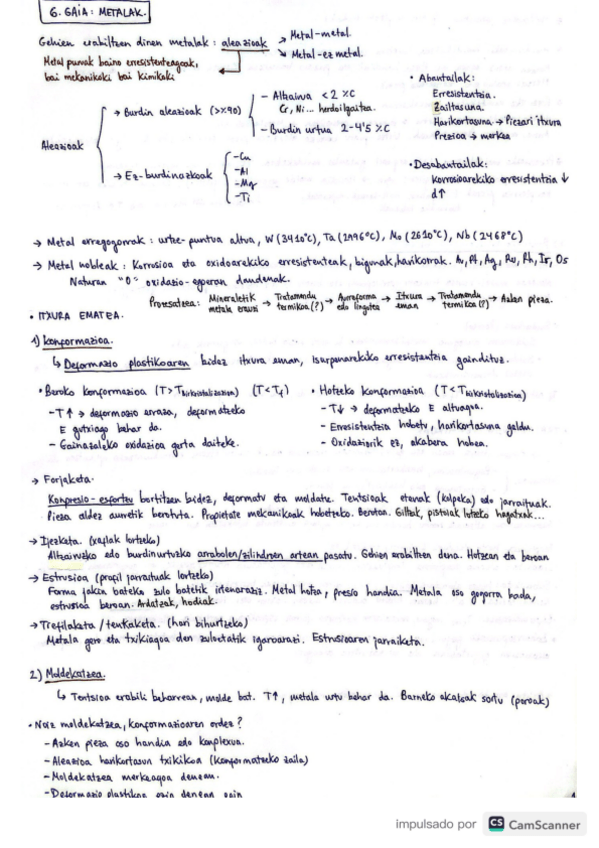 6. GAIA: METALAK.
Gehien erabiltzen diren metalak: aleazioak → Metal-metal.
↘ Metal-ez metal.
Metal puruak baino erresistenteagoak,
bai mekanikoki bai kimikoki
Aleazioak
→ Burdin aleazioak (>%90)
- Altzairua < 2 %C
Cr, Ni... herdoilgaitza.
- Burdin urtua 2-4'5 %C
→ Ez-burdinazkoak
- Cu
- Al
- Mg
- Ti
• Abantailak:
Erresistentzia.
Zailtasuna.
Harikortasuna → Piezari itxura
Prezioa → merkea
• Desabantailak:
Korrosioarekiko erresistentzia ↓
d↑
→ Metal erregogorrak: urtze-puntua altua, W (3410ºC), Ta (2996ºC), Mo (2610ºC), Nb (2468ºC)
→ Metal nobleak: Korrosioa eta oxidoarekiko erresistenteak, bigunak, harikorrak. Au, Pt, Ag, Ru, Rh, Ir, Os
Naturan "0" oxidazio-egoeran daudenak.
Prozesatzea: Mineraletik metala erauzi → Tratamendu termikoa (?) → Aurreforma edo lingotea → Itxura eman → Tratamendu termikoa (?) → Azken pieza.
• ITXURA EMATEA.
1) Konformazioa.
↳ Deformazio plastikoaren bidez itxura eman, isurpenarekiko erresistentzia gaindituz.
• Beroko konformazioa (T > Tbirkristalizazioa) (T < Tf)
- T↑ → deformazio erraza, deformatzeko
E gutxiago behar da.
- Gainazaleko oxidazioa gerta daiteke.
• Hotzeko konformazioa (T < Tbirkristalizazioa)
- T↓ → deformatzeko E altuagoa.
- Erresistentzia hobetu, harikortasuna galdu.
- Oxidaziorik ez, akabera hobea.
→ Forjaketa.
Konpresio-esfortzu bortitzen bidez, deformatu eta moldatu. Tentsioak etenak (kolpeka) edo jarraituak.
Pieza aldez aurretik berotuta. Propietate mekanikoak hobetzeko. Beroan. Giltzak, pistoiak lotzeko hagatxoak...
→ Ijezketa. (xaflak lortzeko)
Altzairuzko edo burdinurtuzko arrabolen/zilindroen artean pasatu. Gehien erabiltzen dena. Hotzean eta beroan
→ Estrusioa (profil jarraituak lortzeko)
Forma jakin bateko zulo batetik irtenaraziz. Metal hotza, presio handia. Metala oso gogorra bada,
estrusioa beroan. Ardatzak, hodiak.
→ Trefilaketa / tenkaketa. (hari bihurtzeko)
Metala gero eta txikiagoa den zuloetatik igaroarazi. Estrusioaren jarraiketa.
2) Moldekatzea.
↳ Tentsioa erabili beharrean, molde bat. T↑, metala urtu behar da. Barneko akatsak sortu (poroak)
• Noiz moldekatzea, konformazioaren ordez?
- Azken pieza oso handia edo konplexua.
- Aleazioa harikortasun txikikoa (Konformatzeko zaila)
- Moldekatzea merkeagoa denean.
- Deformazio plastikoa ezin denean egin
impulsado por CS CamScanner